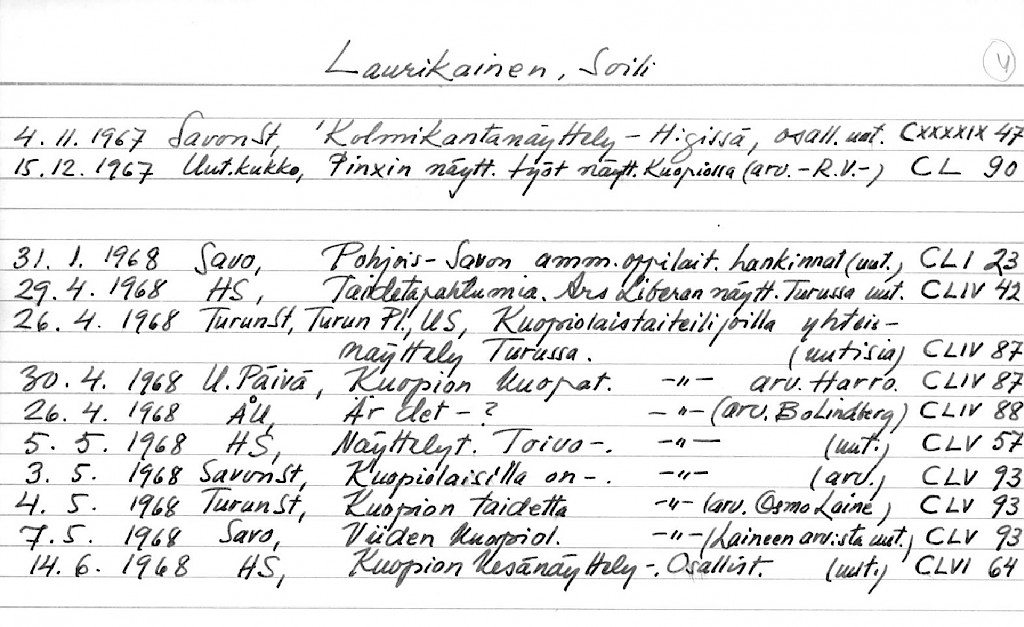 Laurikainen, Soili 4
4. 11. 1967 SavonSt, 'Kolmikantanäyttely – H:gissä, osall. uut. CXXXXIX 47
15. 12. 1967 Uut.kukko, Pinxin näytt. työt näytt. Kuopiossa (arv. – R.V. –) CL 90
31. 1. 1968 Savo, Pohjois-Savon amm.oppilait. hankinnat (uut.) CLI 23
29. 4. 1968 HS, Taidetapahtumia. Ars Liberan näytt. Turussa uut. CLIV 42
26. 4. 1968 TurunSt, Turun Pl., US, Kuopiolaistaiteilijoilla yhteis-
näyttely Turussa. (uutisia) CLIV 87
30. 4. 1968 U. Päivä, Kuopion kuopat. –"– arv. Harro. CLIV 87
26. 4. 1968 ÅU, Är det – ? –"– (arv. Bo Lindberg) CLIV 88
5. 5. 1968 HS, Näyttelyt. Toivo –. –"– (uut.) CLV 57
3. 5. 1968 SavonSt, Kuopiolaisilla on –. –"– (arv.) CLV 93
4. 5. 1968 TurunSt, Kuopion taidetta –"– (arv. Osmo Laine) CLV 93
7. 5. 1968 Savo, Viiden kuopiol. –"– (Laineen arv:sta uut.) CLV 93
14. 6. 1968 HS, Kuopion kesänäyttely –. Osallist. (uut.) CLVI 64